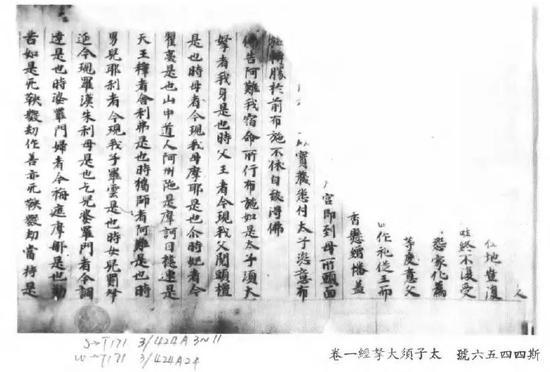 終不復受
怨家化為
等慶意父
香懸繒幡蓋
宮即到母所頭面
以寶藏悉付太子恣意布
施轉勝於前布施不休自致得佛
佛告阿難我宿命所行布施如是太子須大
拏者我身是也時父王者今現我父閱頭檀
是也時母者今現我母摩耶是也尒時妃者今
瞿夷是也山中道人阿州陁是摩訶目揵連是
天王釋者舍利弗是也時獵師者阿難是也時
男兒耶利者今現我子羅雲是也時女兒罽拏
延今現羅漢朱利母是也乞兒婆羅門者今調
達是也時婆羅門婦者今栴遮摩那是也勤
苦如是无鞅數劫作善亦无鞅數劫當持是
斯四四五六號 太子須大拏經一卷
S→T171 3/424A3~11
T171 3/424A24